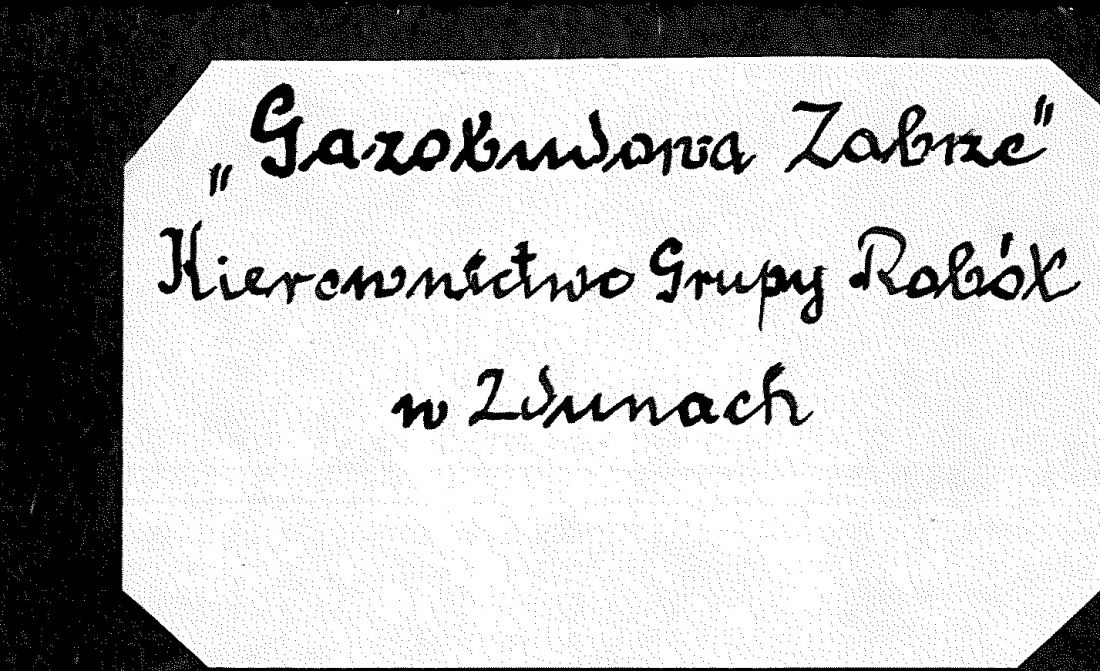 „Gazobudowa Zabrze"
Kierownictwo Grupy Robót
w Zdunach